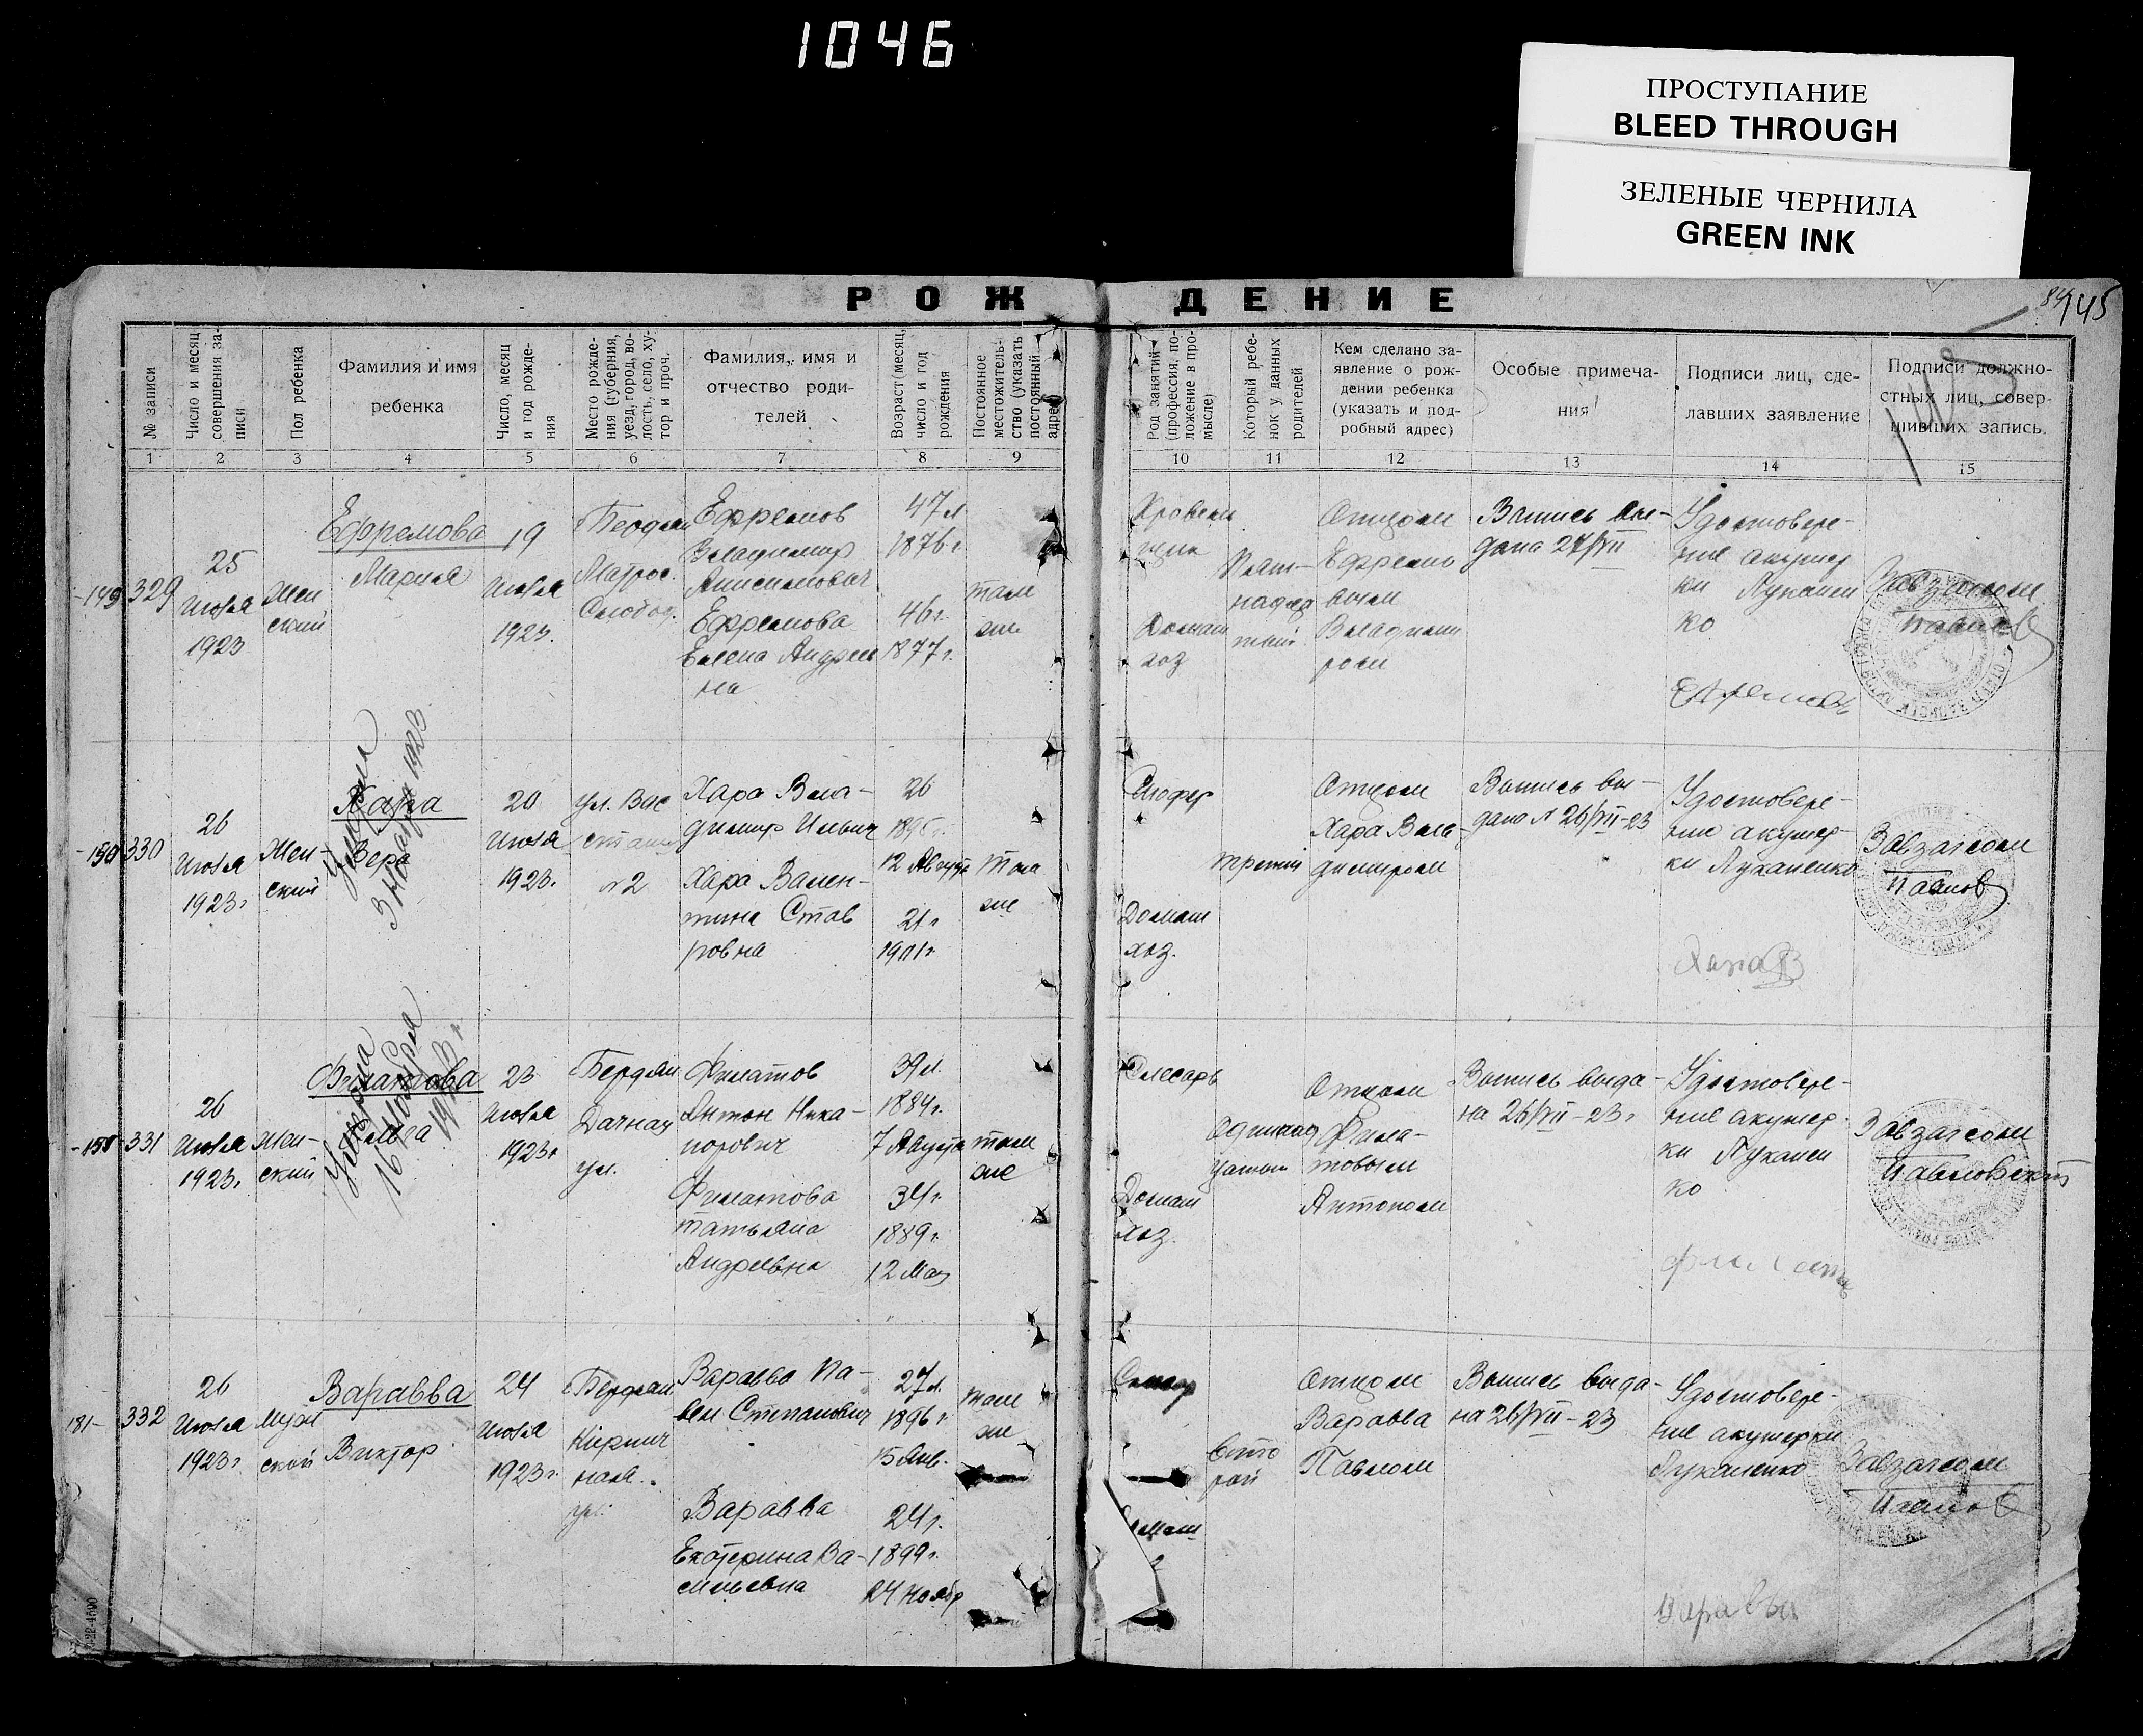 1046
ПРОСТУПАНИЕ
BLEED THROUGH
ЗЕЛЕНЫЕ ЧЕРНИЛА
GREEN INK
РОЖДЕНИЕ
145
№ записи
Число и месяц совершения записи
Пол ребенка
Фамилия и имя
ребенка
Число, месяц и год рождения
Место рождения (губерния, уезд, город, волость, село, хутор и проч.
Фамилия, имя и
отчество роди-
телей
Возраст (месяц, число и год рождения
Постоянное местожительство (указать постоянный адрес)
Род занятий (профессия, положение в промысле)
Который ребенок у данных родителей
Кем сделано за-
явление о рож-
дении ребенка
(указать и под-
робный адрес)
Особые примеча-
ния
Подписи лиц, сде-
лавших заявление
Подписи должно-
стных лиц, совер-
шивших запись.
1 2 3 4 5 6 7 8 9 10 11 12 13 14 15
149
329
25
июля
1923
Жен
ский
Ефремова
Мария
19
июля
1923.
Бердян
Матрос.
Слобод.
Ефремов
Владимир
Анисимович
Ефремова
Елена Андреев
на
47 л
1876 г.
46 г.
1877 г.
там
же
Кровель
щик
Домаш
хоз
Пят-
надца
тый
Отцом
Ефремо
вым
Владими
ром
Выпись вы-
дана 27/VII
Удостовере-
ние акушер
ки Луканен
ко
Ефремовъ
Завзагсом
Павлов
150
330
26
июля
1923 г
Жен-
ский
Хара
Вера
Умерла
3 Января 1923
20
июля
1923.
ул. Вос
стан
№ 2
Хара Вла-
димир Ильич
Хара Вален-
тина Став
ровна
26
12 Августа
21 г
1901 г.
там
же
Шофер
Домаш
хоз.
третий
Отцом
Хара Вла-
димиром
Выпись вы-
дана 26/VII-23
Удостовере-
ние акушер-
ки Луканенко
Хара В
Завзагсом
Павлов
331
26
июля
1923.
Жен-
ский
Филатова
Ольга
Умерла
16 Ноября
1923 г
23
июля
1923 г
Бердян
Дачная
ул.
Филатов
Антон Ника-
норович
Филатова
Татьяна
Андреевна
39 л.
1884 г.
7 Августа
34 г.
1889 г.
12 Мая
там
же
Слесарь
Домаш
хоз.
Одинад
цатый
Отцом
Фила-
товым
Антоном
Выпись выда-
на 26/VII-23 г
Удостовере-
ние акушер
ки Луканен
ко
Завзагсом
Павловский
181-
332
26
июля
1923 г
Муж
ской
Варавва
Виктор
24
июля
1923 г.
Бердян
Кирпич
ная
ул.
Варавва Па-
вел Степанович
Варавва
Екатерина Ва-
сильевна
27 л.
1896 г.
15 Янв.
24 г.
1899 г.
24 Ноябр
там
же
Вто
рой
Отцом
Варавва
Павлом
Выпись выда-
на 26/VII-23
Удостовере-
ние акушерки
Луканенко
Варавва
Завзагсом
Павлов